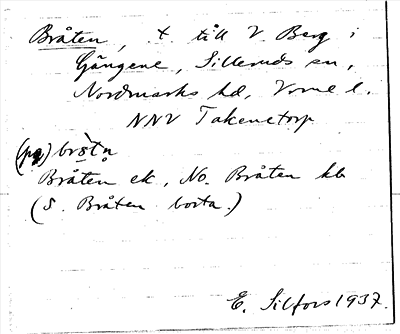 Bråten, t. till V. Berg i
Gängene, Silleruds sn,
Nordmarks hd, Värml. l.
NNV Takenetorp
(på)
Bråten ek, No. Bråten kb
(S. Bråten borta.)
E. Silfors 1937.